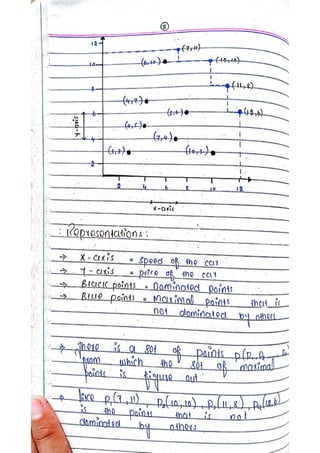 5
12
(7,11)
10
(10,10)
8
(11,8)
(4,7)
6
(12,6)
(4,5)
(7,4)
(10,3)
2
2 4 6 8 10 12
Y-axis
X-axis
Representations :
→ X-axis = speed of the car
→ Y-axis = price of the car
→ Black points = Dominated points
→ Blue points = Maximal points that is
not dominated by others
→ There is a set of points P(P₁, P₂
from which the set of maximal
points is figure out
→ Like P₁(7,11) P₂(10,10), P₃(11,8), P₄(12,6)
is the points that is not
dominated by others.